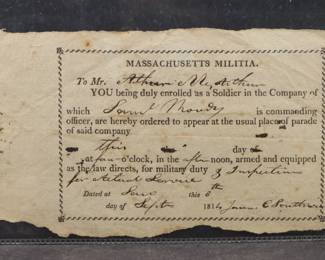 MASSACHUSETTS MILITIA.
To Mr. Arthur McArthur
YOU being duly enrolled as a Soldier in the Company of
which Saml Moody is commanding
officer, are hereby ordered to appear at the usual place of parade
of said company
this day
at four o'clock, in the afternoon, armed and equipped
as the law directs, for military duty & Inspection
for Actual Service
Dated at this 6th
day of Sept 1814